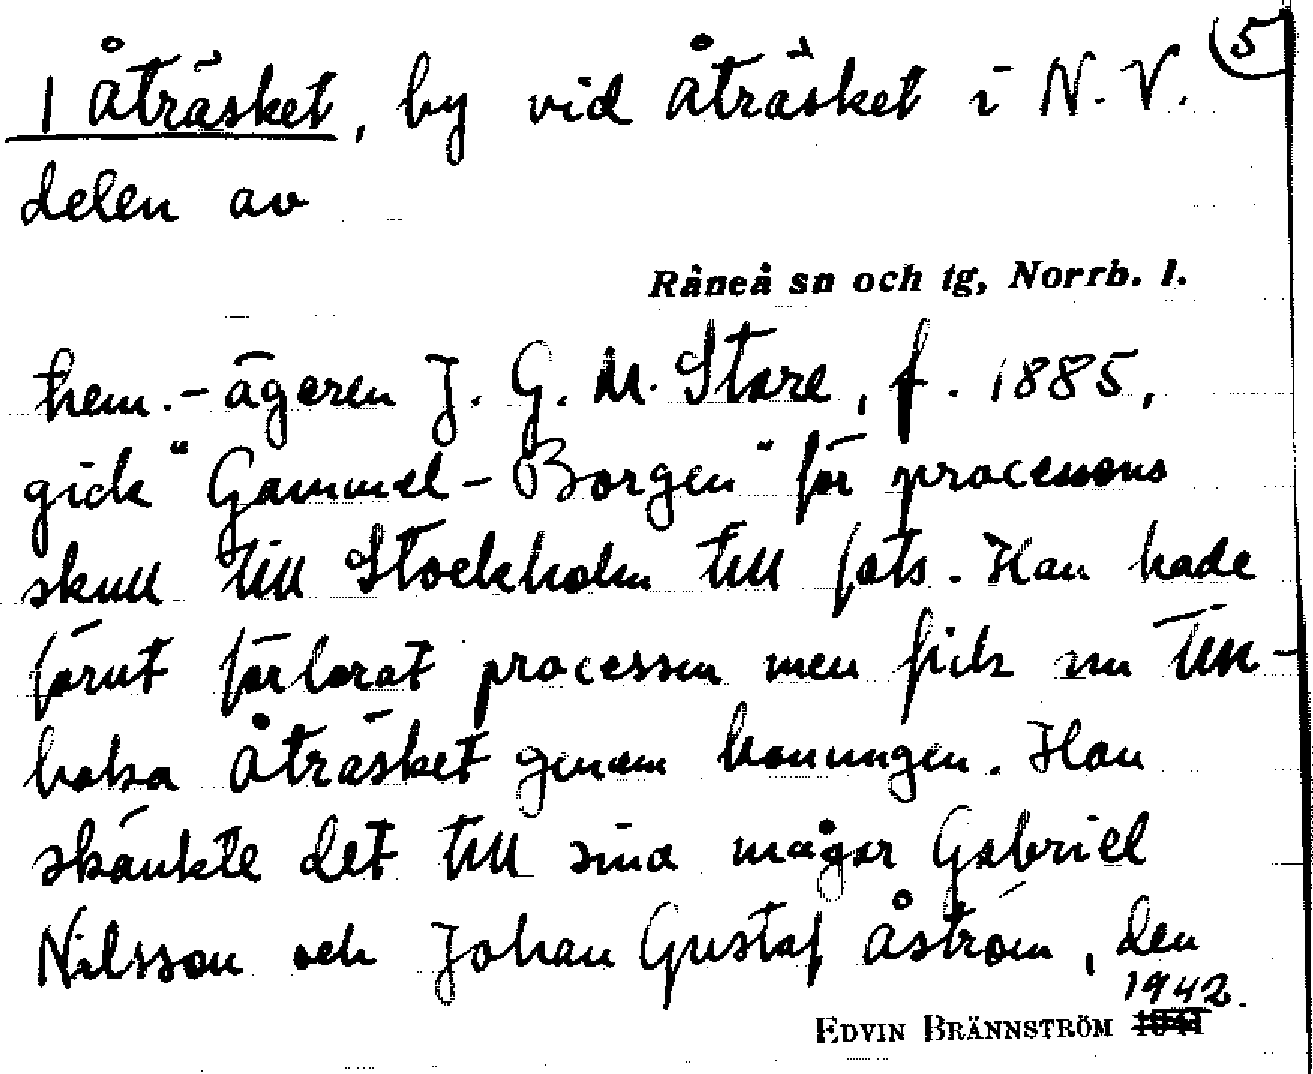 5
1 Åträsket, by vid Åträsket i N.V.
delen av
Råneå sn och tg, Norrb. l.
hem.-ägaren J. G. M. Stare, f. 1885,
gick "Gammel-Borgen" för processens
skull till Stockholm till fots. Han hade
förut förlorat processen men fick nu till-
baka Åträsket genom konungen. Han
skänkte det till sina mågar Gabriel
Nilsson och Johan Gustaf Åström, den
1942.
EDVIN BRÄNNSTRÖM 1941